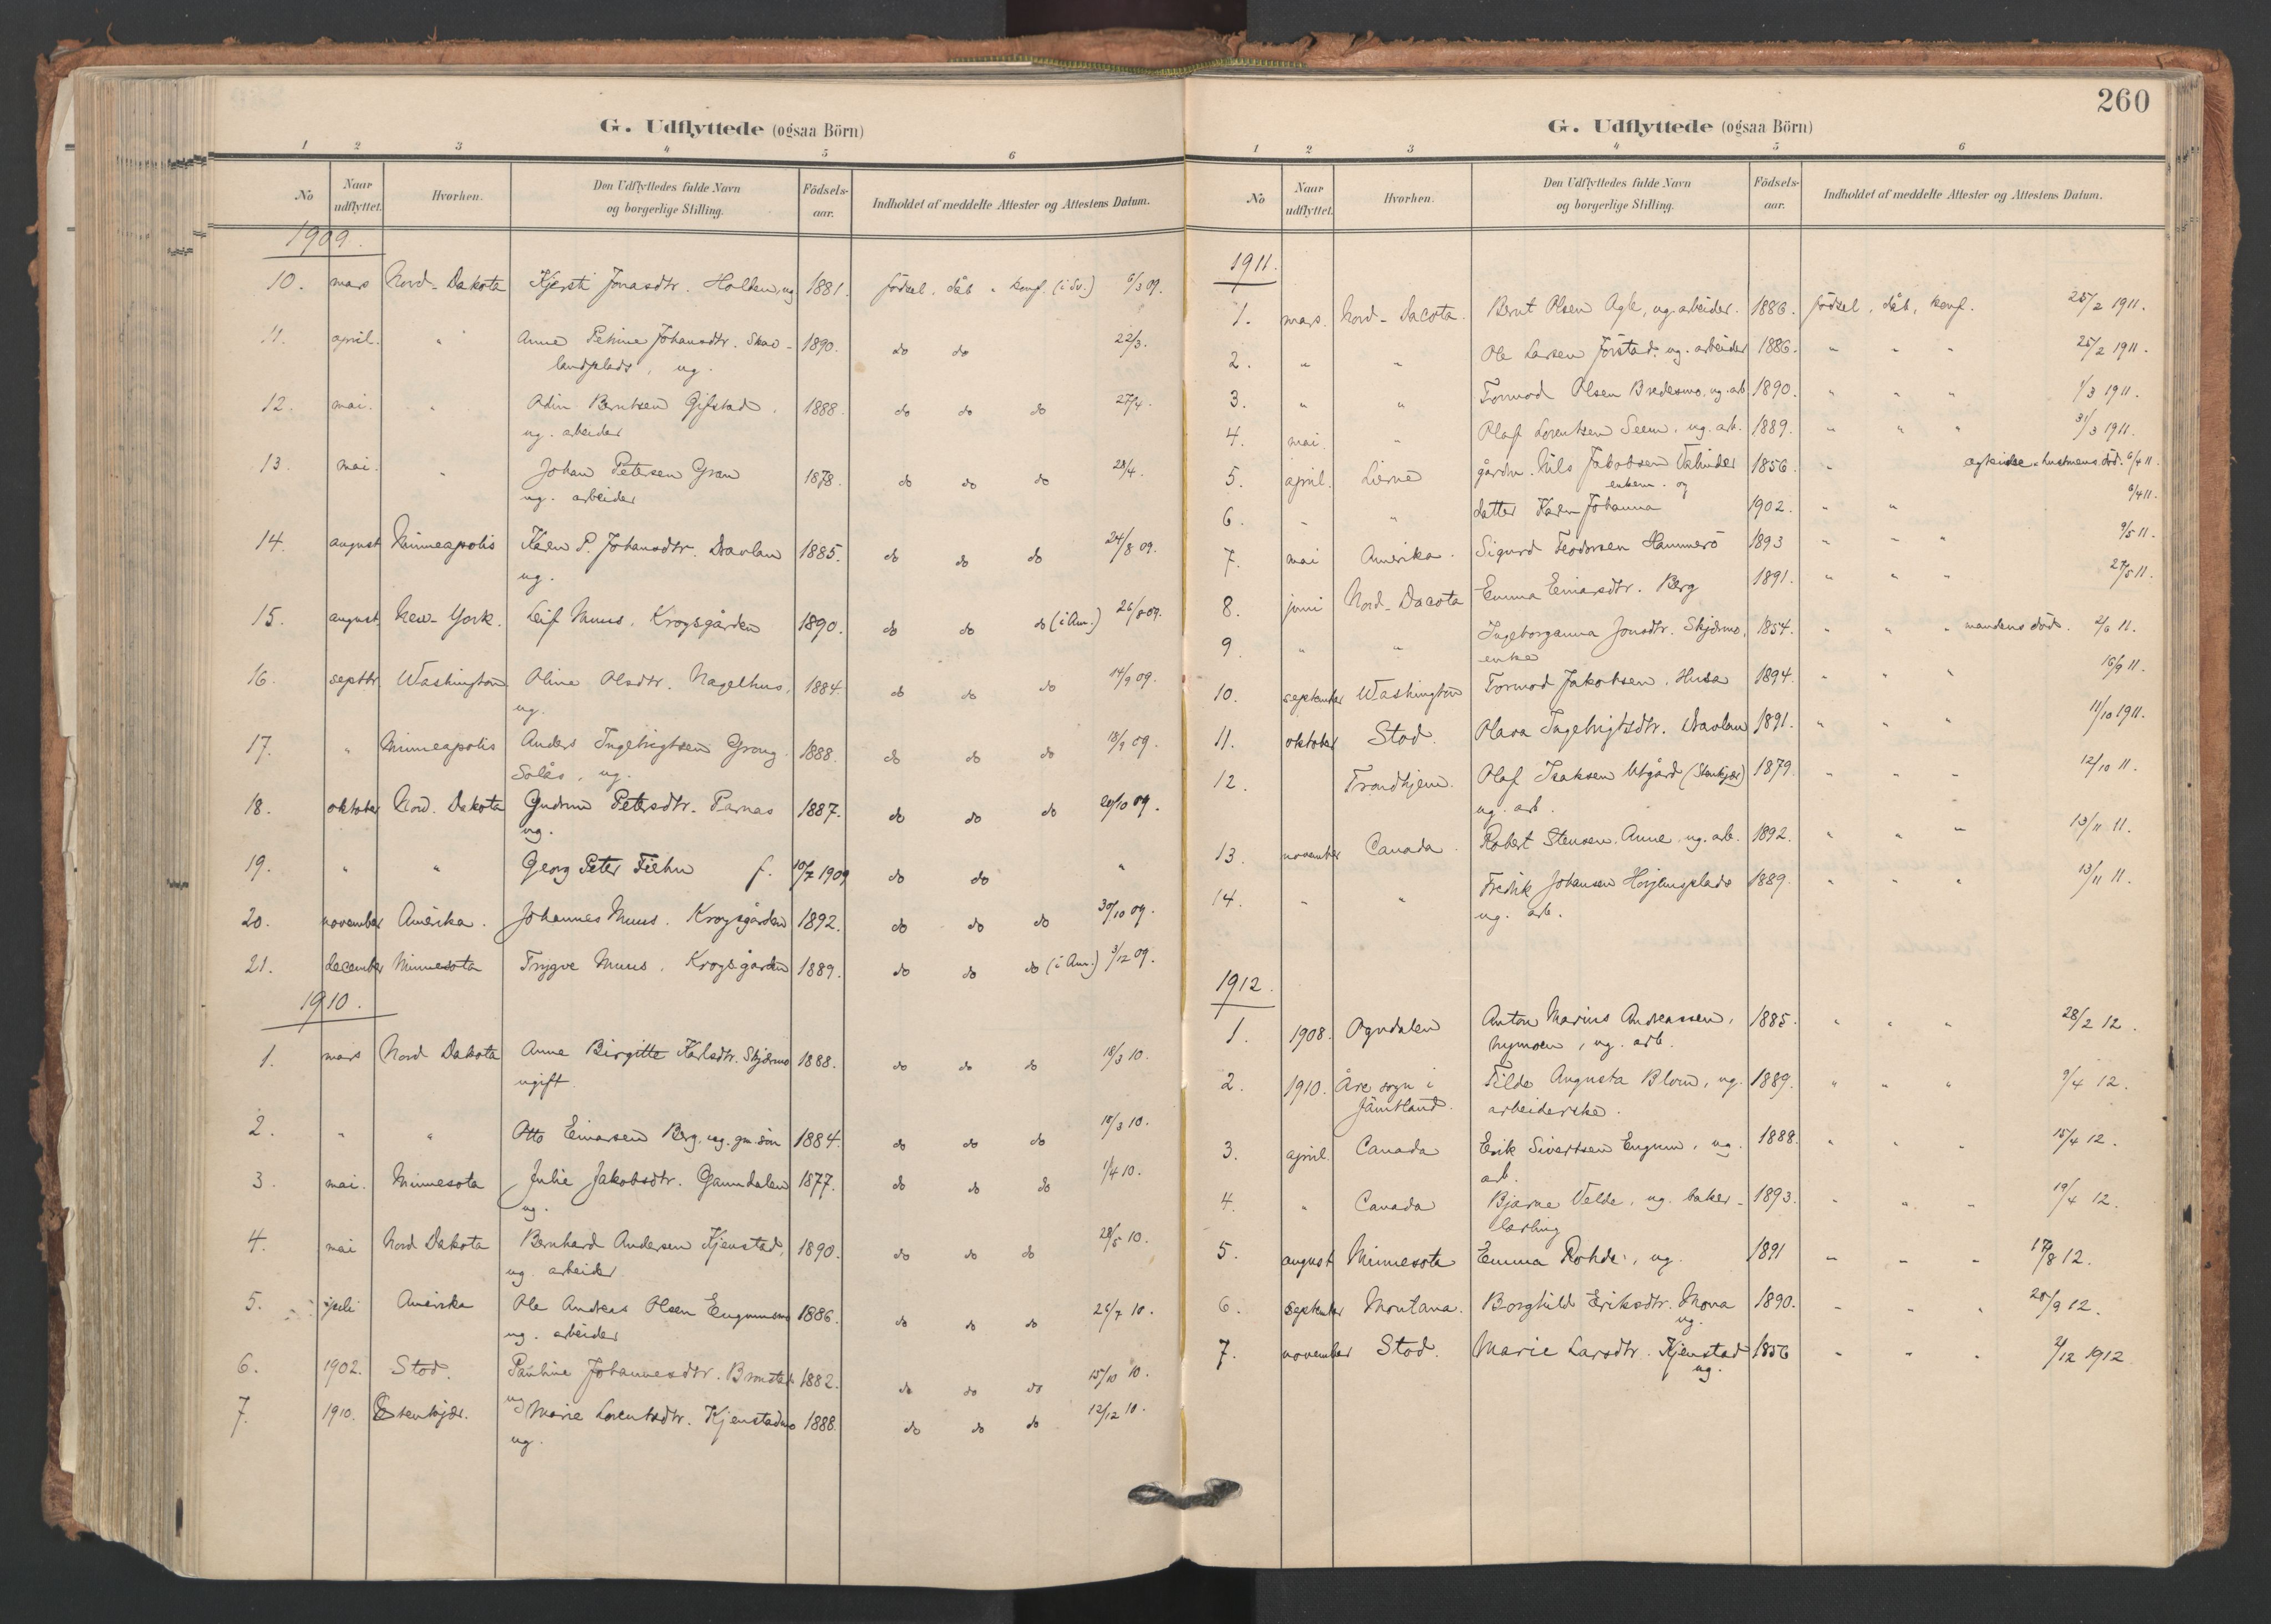 G. Udflyttede (ogsaa Börn)
1 2 3 4 5 6
No Naar udflyttet. Hvorhen. Den Udflyttedes fulde Navn og borgerlige Stilling. Födsels-aar. Indholdet af meddelte Attester og Attestens Datum.
1909.
10. mars Nord-Dakota Kjersti Jonasdtr. Holden, ug 1881. födsel, dåb, konf. (i Sv.) 6/3 09.
11. april. " Anne Petrine Johansdtr. Skav- 1890. do do 22/3.
landsplads, ug.
12. mai. " Odin Berntsen Gifstad, 1888. do do do 27/4.
ug. arbeider
13. mai. " Johan Petersen Gran 1878. do do do 28/4.
ug. arbeider
14. august Minneapolis Karen P. Johansdtr. Davlan 1885. do do do 24/8 09.
ug.
15. august New-York. Leif Muus, Krogsgården 1890. do do do (i Am.) 26/8 09.
16. septbr. Washington Oline Olsdtr. Nagelhus, 1884. do do do 14/9 09.
ug.
17. " Minneapolis Anders Ingebrigtsen Grong 1888. do do do 18/9 09.
Solås, ug.
18. oktober Nord. Dakota Gudrun Petersdtr. Parnas 1887. do do do 20/10 09.
ug.
19. " " Georg Peter Fiehn f. 10/7 1909 do do "
20. november Amerika. Johannes Muus. Krogsgården 1892. do do do 30/10 09.
21. december Minnesota Trygve Muus. Krogsgården 1889. do do do (i Am.) 3/12 09.
1910.
1. mars Nord Dakota Anna Birgitte Karlsdtr. Skjærmo 1888. do do do 18/3 10.
ugift
2. " " Otto Einarsen Berg, ug. gm. søn 1884. do do do 18/3 10.
3. mai. Minnesota Julie Jakobsdtr. Gaundalen 1877. do do do 1/4 10.
ug.
4. mai Nord Dakota Bernhard Andersen Kjenstad, 1890. do do do 28/5 10.
ug. arbeider
5. juli Amerika Ole Andreas Olsen Engummo 1886. do do do 26/7 10.
ug. arbeider
6. 1902. Stod. Pauline Johannesdtr. Brustad 1882. do do do 15/10 10.
ug
7. 1910. Stenkjær. Marie Lorentsdtr. Kjenstadmo 1888. do do do 12/12 10.
ug.
260
G. Udflyttede (ogsaa Börn)
1 2 3 4 5 6
No Naar udflyttet. Hvorhen. Den Udflyttedes fulde Navn og borgerlige Stilling. Födsels-aar. Indholdet af meddelte Attester og Attestens Datum.
1911.
1. mars. Nord-Dacota. Bernt Olsen Agle, ug. arbeider. 1886. födsel, dåb, konf. 25/2 1911.
2. " " Ole Larsen Jörstad. ug. arbeider 1886. " " " 25/2 1911.
3. " " Tormod Olsen Bredesmo, ug. arb 1890. " " " 1/3 1911.
4. mai " Olaf Lorentsen Seem, ug. arb. 1889. " " " 31/3 1911.
5. april. Lierne gårdm. Nils Jakobsen 1856. " hustruens död. 6/4 11.
enkem. og
6. " " datter Karen Johanna 1902. " " 6/4 11.
7. mai Amerika. Sigurd Teodorsen Hammerö 1893 " " " 9/5 11.
8. juni Nord-Dacota Emma Einarsdtr. Berg 1891. " " " 27/5 11.
9. " " Ingeborganna Jonsdtr. Skjærmo, 1854. " " " mandens död. 2/6 11.
enke
10. september Washington Tormod Jakobsen, Husa 1894. " " " 16/9 11.
11. oktober Stod. Olava Ingebrigtsdtr. Davlan 1891. " " " 11/10 1911.
12. Trondhjem. Olaf Isaksen Utgård (Stenkjær) 1879. " " " 12/10 11.
ug. arb.
13. november Canada. Robert Stensen Aune ug. arb. 1892. " " " 13/11 11.
14. " " Fredrik Johansen Høyemsplads 1889. " " " 13/11 11.
ug. arb.
1912.
1. 1908. Ogndalen Anton Marius Andreassen, 1885. " " " 28/2 12.
Nymoen, ug. arb.
2. 1910. Åre sogn i Tilda Augusta Blom, ug. 1889. " " " 9/4 12.
Jämtland. arbeiderske.
3. april. Canada Erik Sivertsen Engum, ug. 1888. " " " 15/4 12.
arb.
4. " Canada Bjarne Velde, ug. baker- 1893. " " " 19/4 12.
lærling
5. august Minnesota Emma Rohde, ug. 1891 " " " 17/8 12.
6. september Montana. Borghild Eriksdtr. Mona 1890. " " " 20/9 12.
ug.
7. november Stod. Marie Larsdtr. Kjenstad 1856 " " " 2/12 1912
ug.